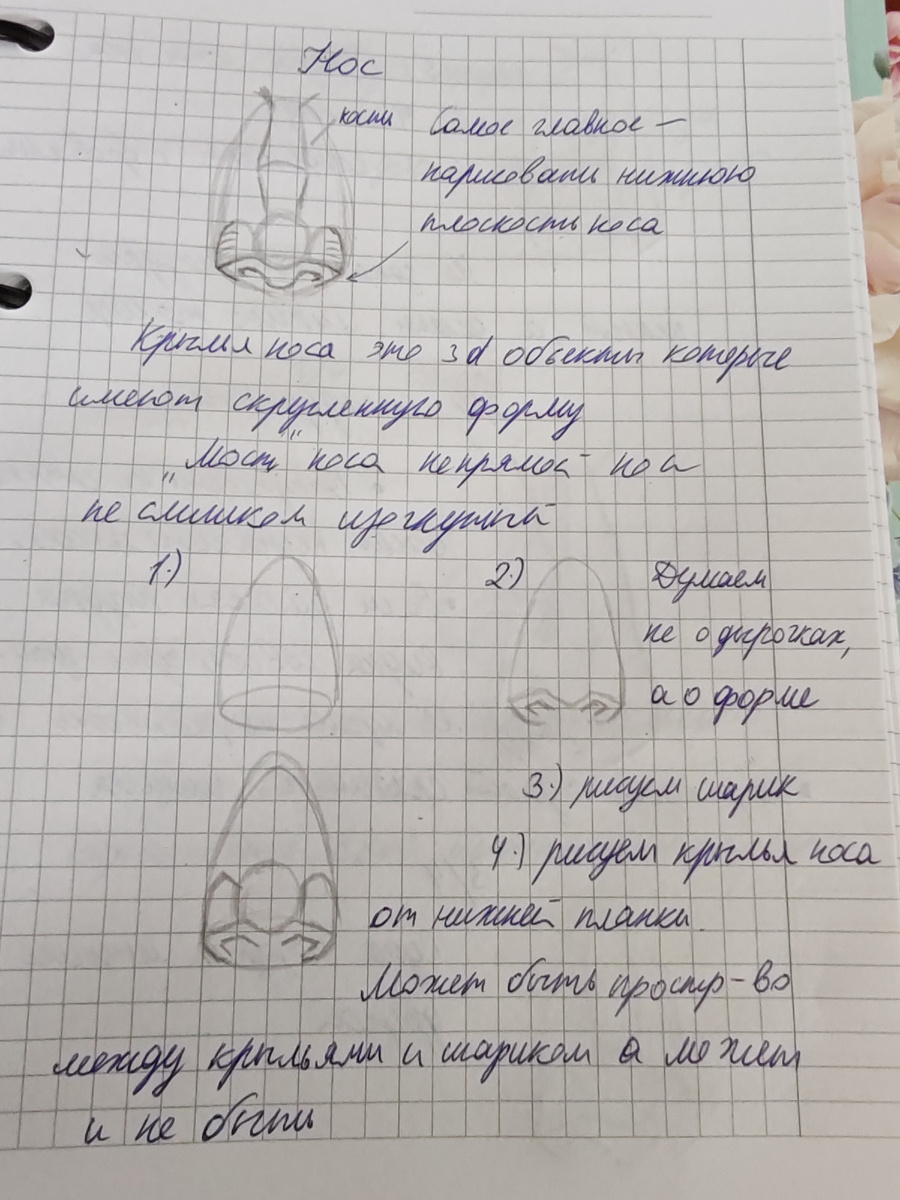 Нос
кости
Самое главное —
нарисовать нижнюю
плоскость носа
Крылья носа это 3d объекты которые
имеют скругленную форму
„Мост" носа непрямой но и
не слишком изогнутый
1.)
2.)
Думаем
не о дырочках,
а о форме
3.) рисуем шарик
4.) рисуем крылья носа
от нижней планки.
Может быть простр-во
между крыльями и шариком а может
и не быть